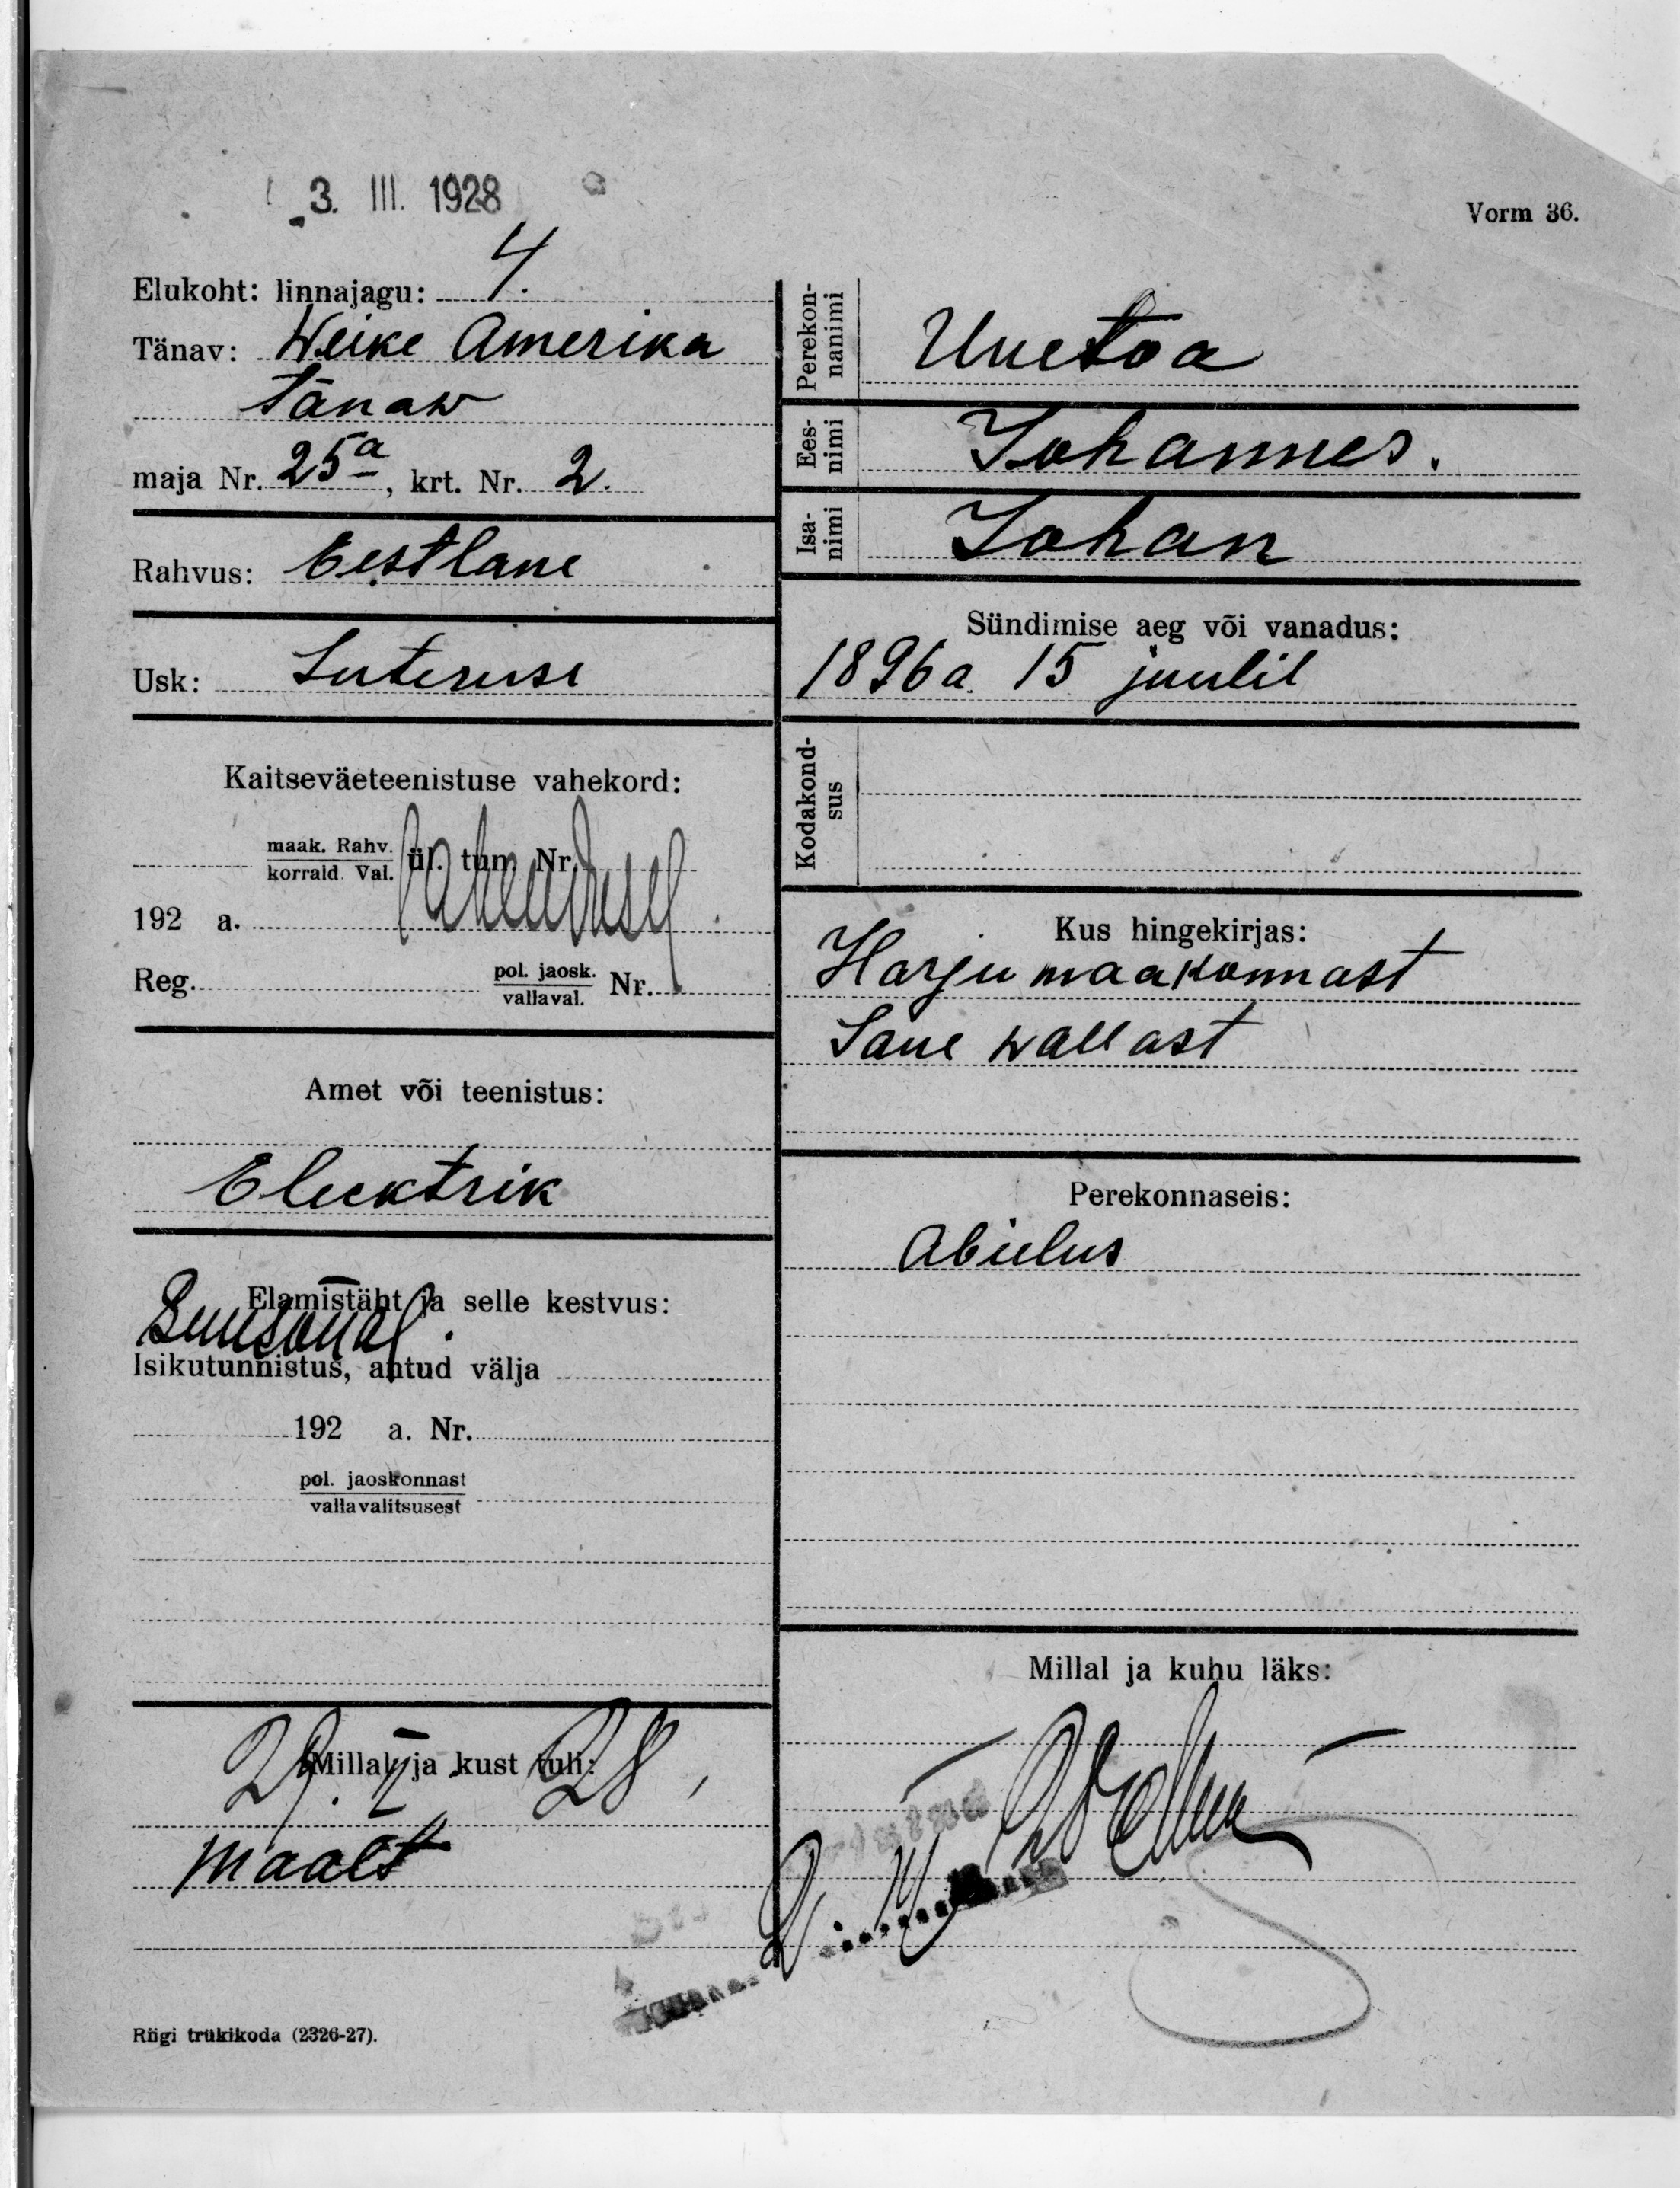 3. III. 1928
Vorm 36.
Elukoht: linnajagu: 4.
Tänav: Weike Amerika
tänaw
maja Nr. 25a, krt. Nr. 2.
Rahvus: Eestlane
Usk: Luteruse
Kaitseväeteenistuse vahekord:
maak. Rahv.
korrald. Val. ül. tun. Nr.
192 a.
Reg. pol. jaosk.
vallaval. Nr.
Amet või teenistus:
Elecktrik
Elamistäht ja selle kestvus:
Isikutunnistus, antud välja
192 a. Nr.
pol. jaoskonnast
vallavalitsusest
Millal ja kust tuli:
29. II 28,
maalt
Riigi trükikoda (2326-27).
Perekon-
nanimi Uuetoa
Ees-
nimi Johannes.
Isa-
nimi Johan
Sündimise aeg või vanadus:
1896 a. 15 juulil
Kodakond-
sus
Kus hingekirjas:
Harju maakonnast
Saue wallast
Perekonnaseis:
Abielus
Millal ja kuhu läks: